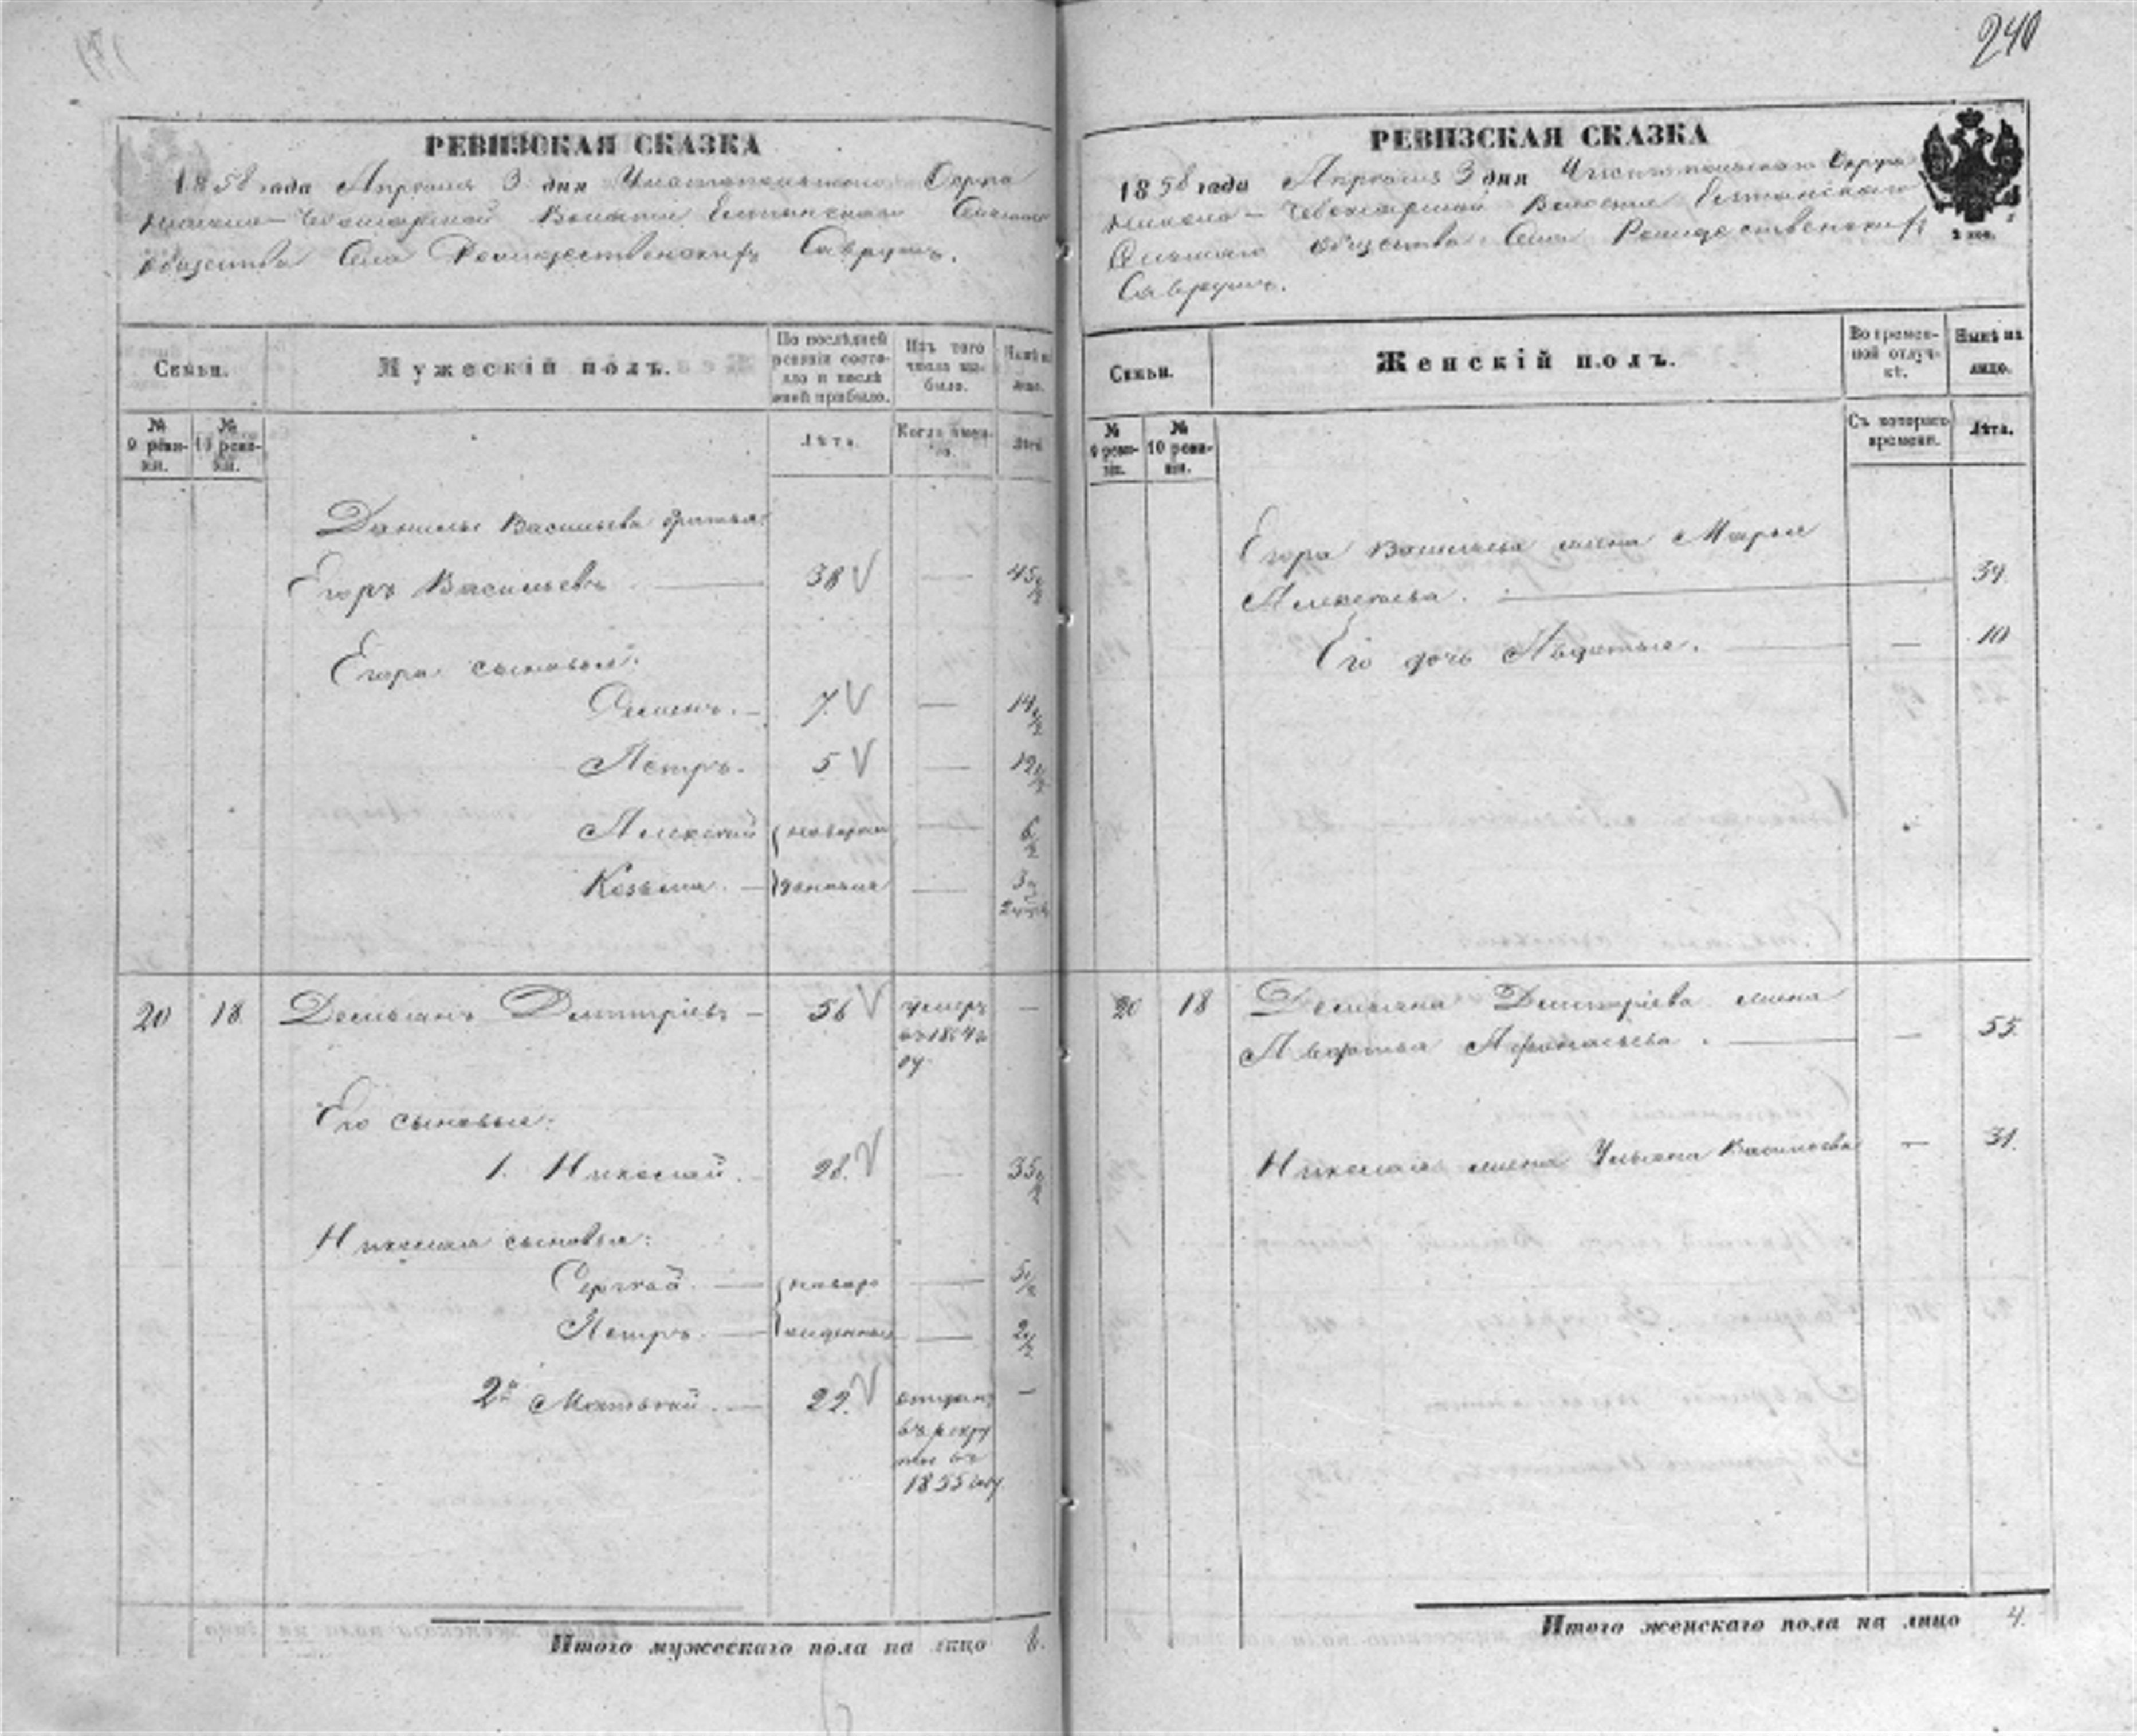 240
РЕВИЗСКАЯ СКАЗКА
1858 года Апреля 3 дня Чистопольскаго Округа
Николо-Чебоксарской Волости Сельскаго
Общества Села Рождественскихъ Саврушъ.
Семьи.
Мужескій полъ.
По послѣдней ревизіи состояло и послѣ оной прибыло.
Изъ того числа выбыло.
Нынѣ на лицо.
№ 9 ревизіи.
№ 10 ревизіи.
Лѣта.
Когда именно.
Лѣта
Данилы Васильева братья:
Егоръ Васильевъ — 38 — 45 1/2
Егора сыновья:
Семенъ. — 7. — 14 1/2
Петръ. 5 — 12 1/2
Алексѣй новорож — 6 1/2
Козьма. — денные — 3 и
20 18 Демьянъ Дмитріевъ — 56 умеръ —
въ 1854 го
ду
Его сыновья:
1. Николай. 28. — 35 1/2
Николая сыновья:
Сергѣй. — новоро — 5 1/2
Петръ. — жденные — 2 1/2
2й Матвѣй. — 22. отданъ —
въ рекру
ты въ
1855 году
Итого мужескаго пола на лицо 8.
РЕВИЗСКАЯ СКАЗКА
1858 года Апреля 3 дня Чистопольскаго Округа
Николо-Чебоксарской Волости
Сельскаго Общества Села Рождественскихъ
Саврушъ.
2 коп.
Семьи.
Женскій полъ.
Во временной отлучкѣ.
Нынѣ на лицо.
№ 9 ревизіи.
№ 10 ревизіи.
Съ котораго времени.
Лѣта.
Егора Васильева жена Марья
Алексѣева. — 39.
Его дочь Авдотья. — — 10
20 18 Демьяна Дмитріева жена
Авдотья Афонасьева. — — 55.
Николая жена Ульяна Васильева — 31.
Итого женскаго пола на лицо 4.